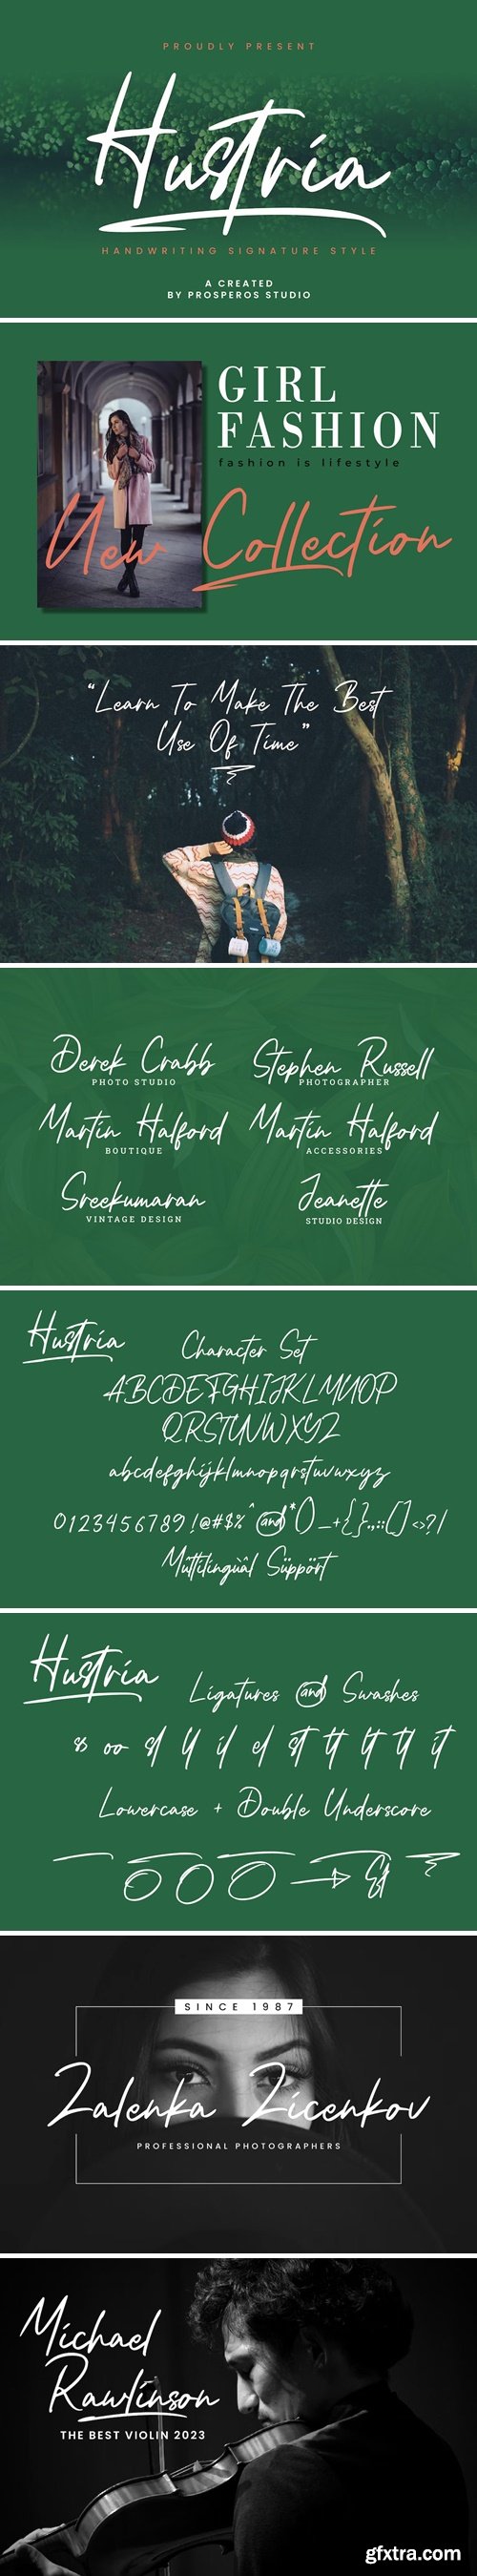 PROUDLY PRESENT
Hustria
HANDWRITING SIGNATURE STYLE
A CREATED
BY PROSPEROS STUDIO
GIRL
FASHION
fashion is lifestyle
New Collection
“Learn To Make The Best
Use Of Time”
Derek Crabb
PHOTO STUDIO
Stephen Russell
PHOTOGRAPHER
Martin Halford
BOUTIQUE
Martin Halford
ACCESSORIES
Sreekumaran
VINTAGE DESIGN
Jeanette
STUDIO DESIGN
Hustria
Character Set
ABCDEFGHIJKLMNOP
QRSTUVWXYZ
abcdefghijklmnopqrstuvwxyz
0123456789!@#$%^and*()_+{}.,:;[]<>?/
Mùltilingùàl Süppört
Hustria
Ligatures and Swashes
Lowercase + Double Underscore
SINCE 1987
Zalenka Zicenkov
PROFESSIONAL PHOTOGRAPHERS
Michael
Rawlinson
THE BEST VIOLIN 2023
gfxtra.com